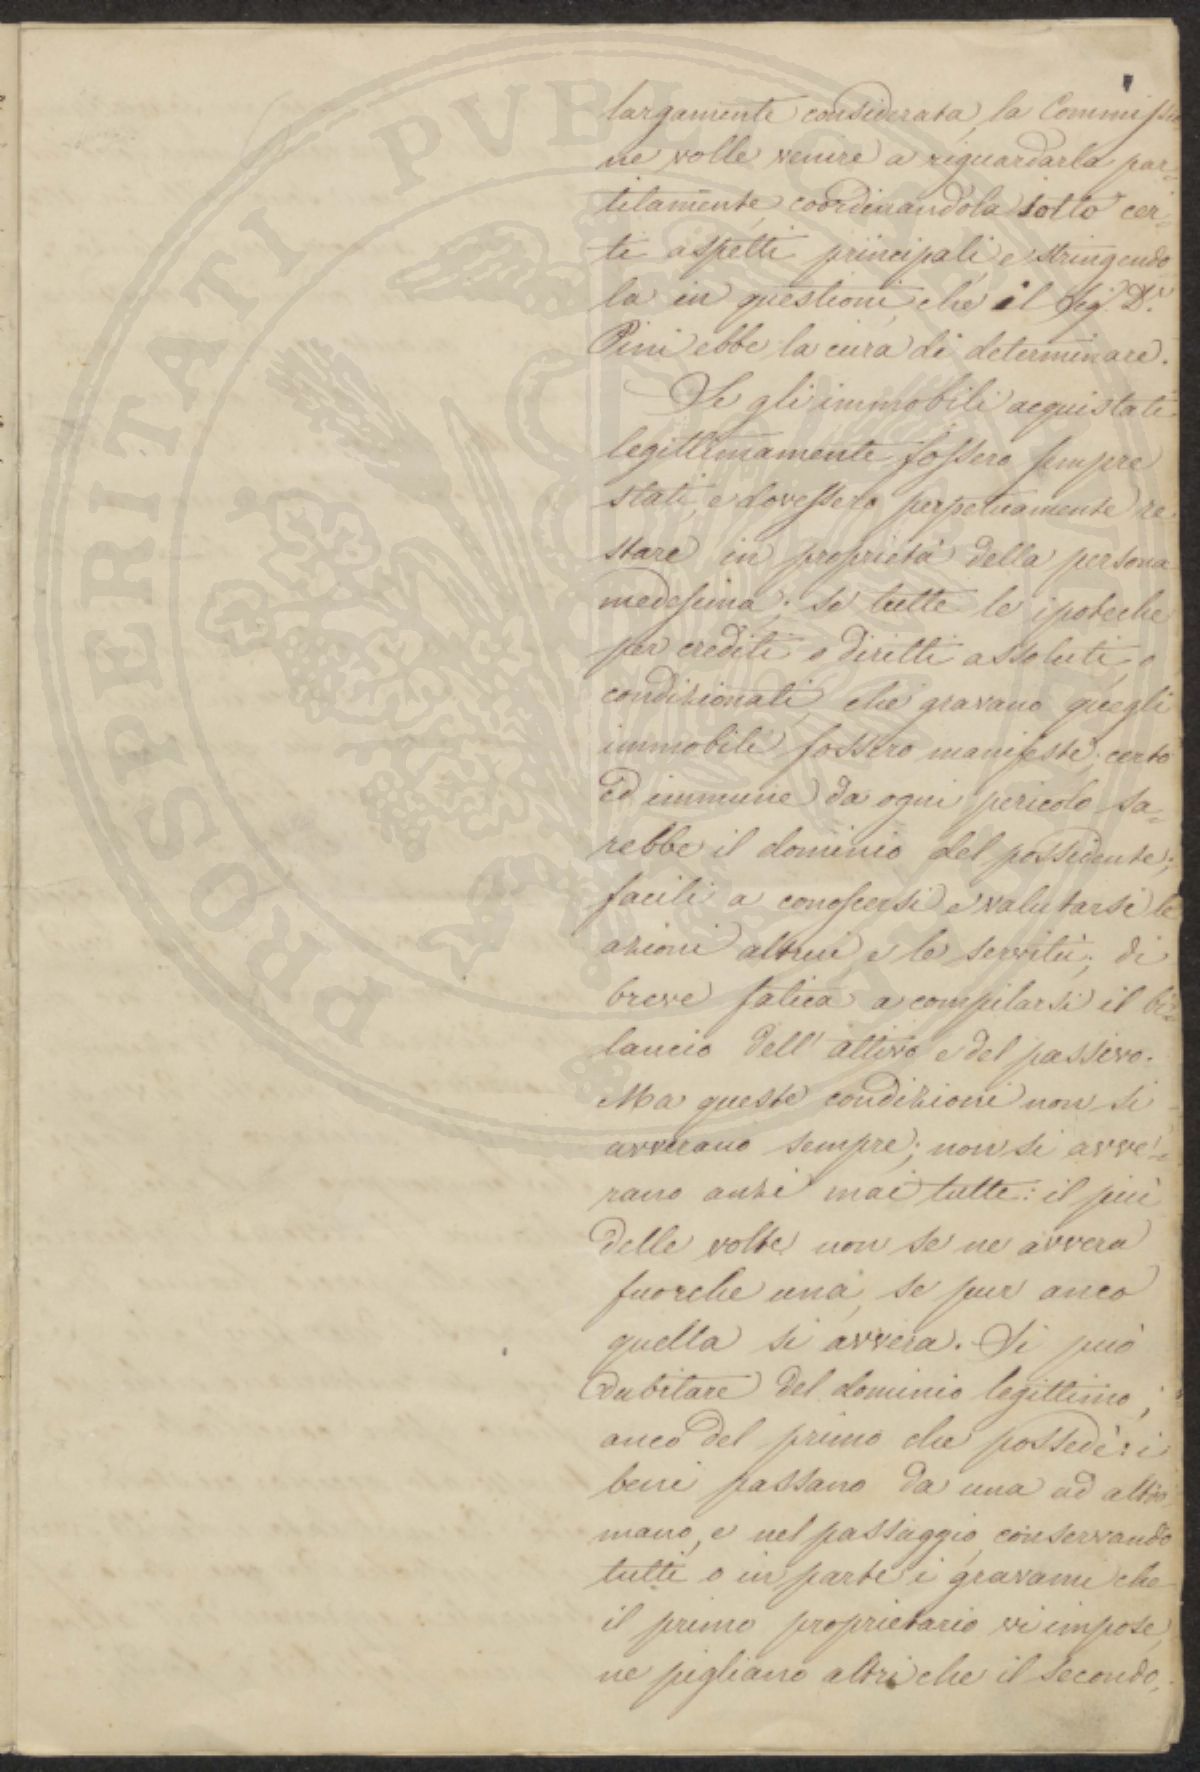 largamente considerata, la Commissio
ne volle venire a riguardarla par-
titamente, coordinandola sotto cer-
ti aspetti principali e stringendo
la in questioni, che il Sig. Dr.
Pini ebbe la cura di determinare.
Se gli immobili acquistati
legittimamente fossero sempre
stati, e dovessero perpetuamente re
stare in proprietà della persona
medesima; se tutte le ipoteche
per crediti o diritti assoluti, o
condizionati, che gravano quegli
immobili fossero manifeste; certo
ed immune da ogni pericolo sa-
rebbe il dominio del possidente;
facili a conoscersi e valutarsi le
azioni altrui e le servitù; di
breve fatica a compilarsi il bi-
lancio dell'attivo e del passivo.
Ma queste condizioni non si
avverano sempre; non si avve-
rano anzi mai tutte: il più
delle volte non se ne avvera
fuorche una, se pur anco
quella si avvera. Si può
dubitare del dominio legittimo,
anco del primo che possedè: i
beni passano da una ad altra
mano, e nel passaggio, conservando
tutti o in parte i gravami che
il primo proprietario vi impose,
ne pigliano altri che il secondo,
PROSPERITATI PVBLICAE